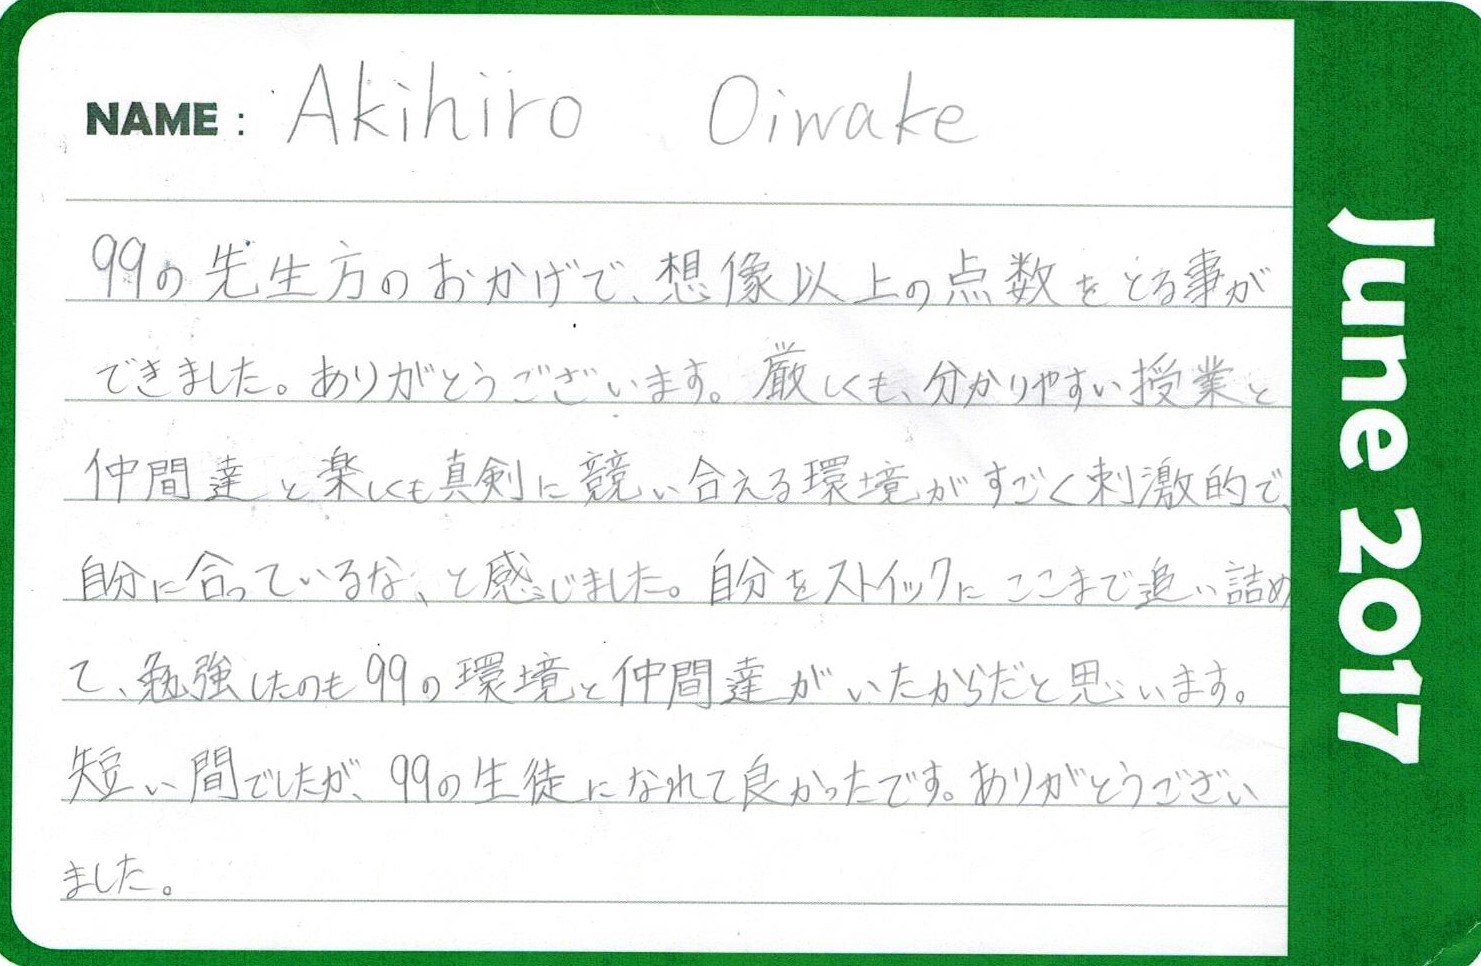 NAME : Akihiro Oiwake
99の先生方のおかげで、想像以上の点数をとる事が
できました。ありがとうございます。厳しくも、分かりやすい授業と
仲間達と楽しくも真剣に競い合える環境がすごく刺激的で、
自分に合っているな、と感じました。自分をストイックにここまで追い詰め
て、勉強したのも99の環境と仲間達がいたからだと思います。
短い間でしたが、99の生徒になれて良かったです。ありがとうござい
ました。
June 2017